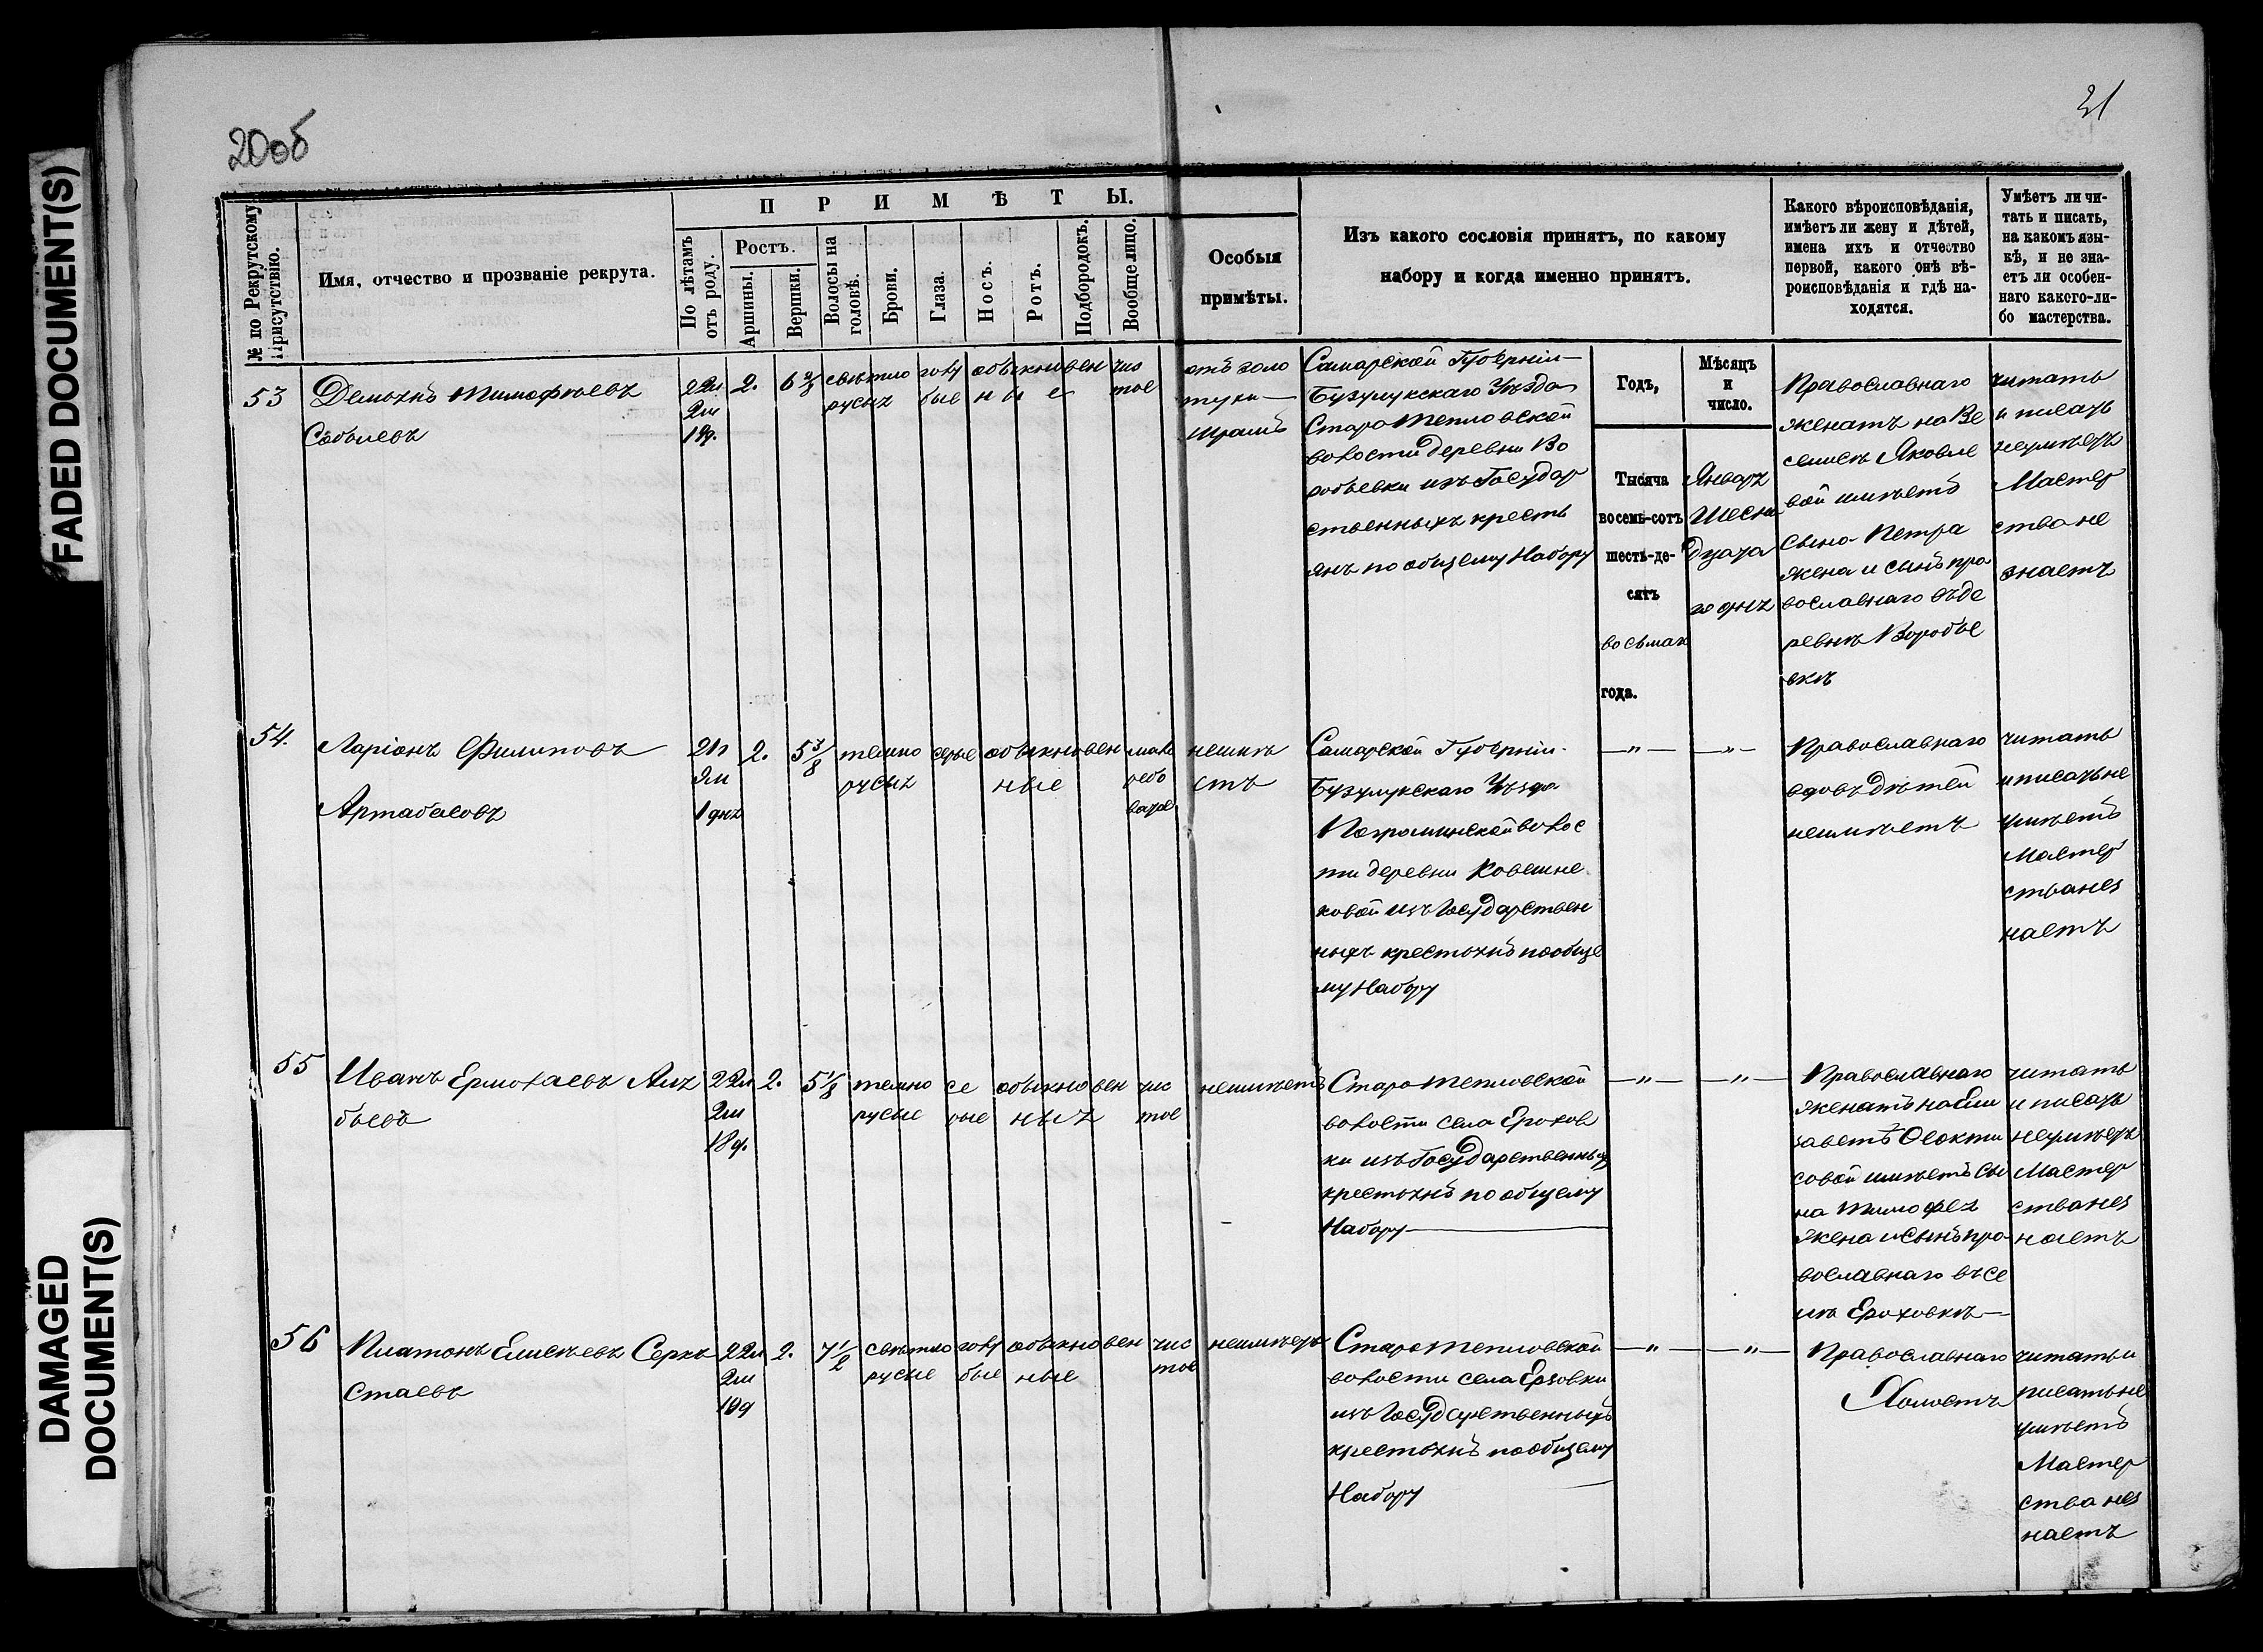 FADED DOCUMENT(S)
DAMAGED
DOCUMENT(S)
20об
21
№ по Рекрутскому Присутствію.
Имя, отчество и прозваніе рекрута.
ПРИМѢТЫ.
По лѣтамъ отъ роду.
Ростъ.
Аршины.
Вершки.
Волосы на головѣ.
Брови.
Глаза.
Носъ.
Ротъ.
Подбородокъ.
Вообще лицо.
Особыя
примѣты.
Изъ какого сословія принятъ, по какому
набору и когда именно принятъ.
Какого вѣроисповѣданія,
имѣетъ ли жену и дѣтей,
имена ихъ и отчество
первой, какого онѣ вѣ-
роисповѣданія и гдѣ на-
ходятся.
Умѣетъ ли чи-
тать и писать,
на какомъ язы-
кѣ, и не зна-
етъ ли особен-
наго какого-ли-
бо мастерства.
53
Демьянъ Тимофѣевъ
Соболевъ
22л
2м
19д.
2.
свѣтло
русыя
голу
бые
обыкновен
ные
чис
тое
отъ золо
тухи
Шрамъ
Самарской Губерніи
Бузулукскаго Уѣзда
Старо Тепловской
волости деревни Во
робьевки изъ Государ
ственныхъ кресть
янъ по общему Набору
Годъ,
Мѣсяцъ
и
число.
Тысяча
восемь-сотъ
шесть-де-
сятъ
восьмая
года.
Январь
Шесна
дцата
го дня
Православнаго
женатъ на Ве
селиск Яковле
вой имѣетъ
сына Петра
жена и сынъ пра
вославнаго въ де
ревнѣ Воробье
вкѣ
читать
и писать
неумѣетъ
Мастер
ства не
знаетъ
54.
Ларіонъ Филиповъ
Артабаевъ
21л
2м
1 дня
2.
5 3/8
темно
русыя
серые
обыкновен
ные
мало
рябо
ватое
неимѣ
етъ
Самарской Губерніи
Бузулукскаго Уѣзда
Погроминской волос
ти деревни Ковешне
ковой изъ Государствен
ныхъ крестьянъ пообще
му Набору
— " —
— " —
Православнаго
вдовъ дѣтей
неимѣетъ
читать
и писать не
умѣетъ
Мастер
ства нез
наетъ
55
Иванъ Ермолаевъ Аля
бьевъ
22л
2м
18д.
2.
5 1/8
темно
русые
се
рые
обыкновен
ныя
чис
тое
неимѣетъ
Старо тепловской
волости села Ероховк
ки изъ Государственныхъ
крестьянъ по общему
Набору
— " —
— " —
Православнаго
женатъ на Ели
заветѣ Феокти
совой имѣетъ сы
на Тимофея
жена и сынъ пра
вославнаго въ се
лѣ Ероховкѣ
читать
и писать
неумѣетъ
Мастер
ства нез
наетъ
56
Платонъ Елисѣевъ Серкъ
стаевъ
22л
2м
19д
2.
7 1/2
свѣтло
русые
голу
бые
обыкновен
ные
чис
тое
неимѣетъ
Старо тепловской
волости села Ерзовки
изъ Государственныхъ
крестьянъ пообщему
Набору
— " —
— " —
Православнаго
Холостъ
читать и
писать не
умѣетъ
Мастер
ства нез
наетъ